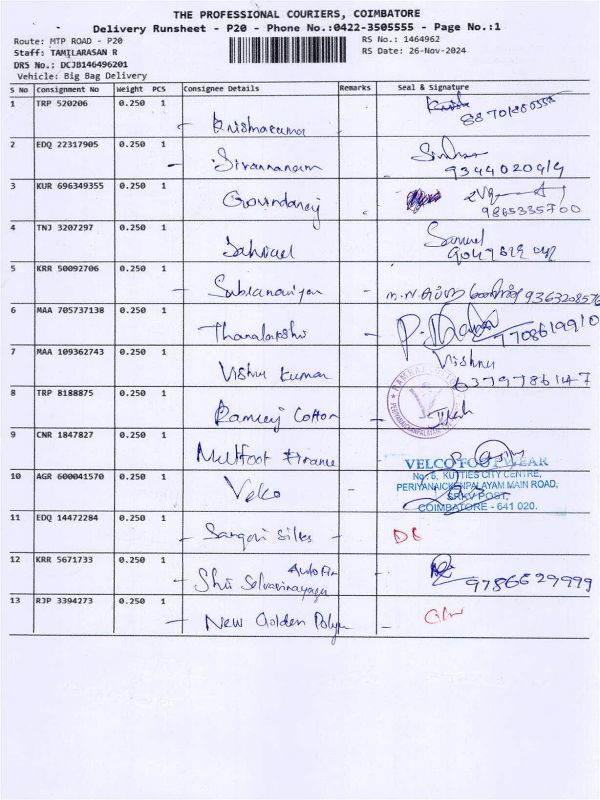 THE PROFESSIONAL COURIERS, COIMBATORE
Delivery Runsheet - P20 - Phone No.:0422-3505555 - Page No.:1
Route: MTP ROAD - P20 RS No.: 1464962
Staff: TAMILARASAN R RS Date: 26-Nov-2024
DRS No.: DCJB146496201
Vehicle: Big Bag Delivery
S No Consignment No Weight PCS Consignee Details Remarks Seal & Signature
1 TRP 520206 0.250 1
Krishnakumar
2 EDQ 22317905 0.250 1
Sivannanam
3 KUR 696349355 0.250 1
Govindaraj
9865335700
4 TNJ 3207297 0.250 1 Samuel
5 KRR 50092706 0.250 1
9363208576
6 MAA 705737138 0.250 1
Thanalakshmi 7708619910
7 MAA 109362743 0.250 1 Vishnu
Vishnu Kumar 6379786147
8 TRP 8188875 0.250 1
Ramraj Cotton
9 CNR 1847827 0.250 1
Multfoot Finance
10 AGR 600041570 0.250 1
Velco
VELCO FOOTWEAR
No: 6, KUTTIES CITY CENTRE,
PERIYANAICKENPALAYAM MAIN ROAD,
SRKV POST,
COIMBATORE - 641 020.
11 EDQ 14472284 0.250 1
Silks
12 KRR 5671733 0.250 1
Shri Selvavinayaga 9786629999
13 RJP 3394273 0.250 1
New Golden